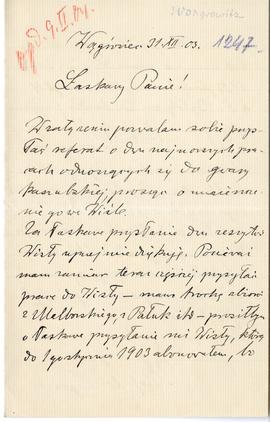 odp. 9. II. 04.
Wongrowitz
1247.
Wągrówiec 31. XII. 03.
Łaskawy Panie!
W załączeniu pozwalam sobie przy-
słać referat o dwu najnowszych pra-
cach odnoszących się do gwary
kaszubskiej prosząc o umieszcze-
nie go w Wiśle.
Za łaskawe przysłanie dwu zeszytów
Wisły uprzejmie dziękuję. Ponieważ
mam zamiar teraz częściej przysyłać
prace do Wisły – mam trochę
z Pałuk itd – prosiłbym
o łaskawe przysyłanie mi Wisły, którą
do 1 stycznia 1903 abonowałem, bo